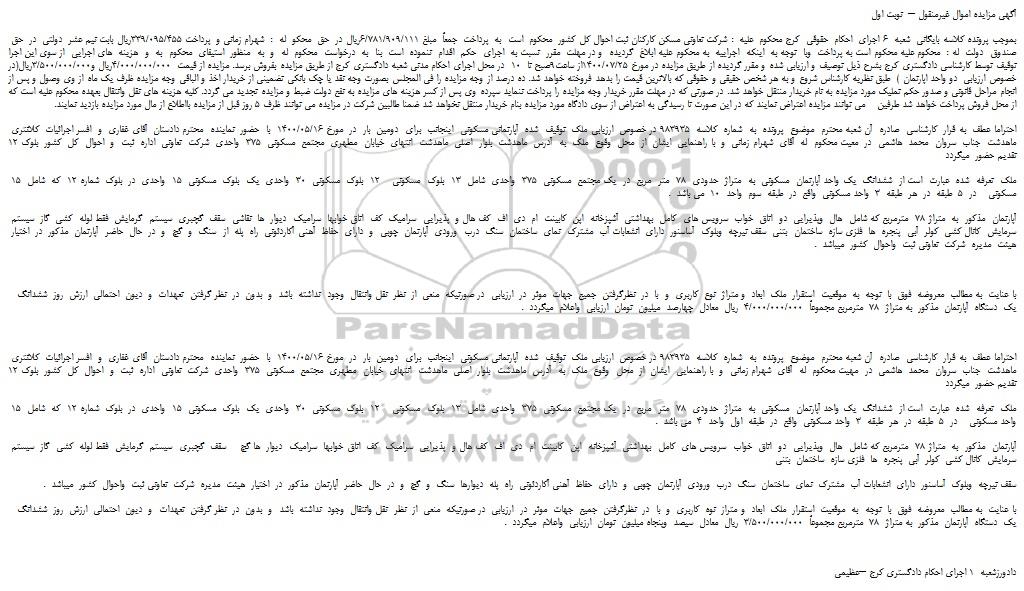 آگهی مزایده اموال غیرمنقول – نوبت اول
بموجب پرونده کلاسه بایگانی شعبه ۶ اجرای احکام حقوقی کرج محکوم علیه : شرکت تعاونی مسکن کارکنان ثبت احوال کل کشور محکوم است به پرداخت جمعاً مبلغ ۶/۷۸۱/۹۰۹/۱۱۱ریال در حق محکو له : شهرام زمانی و پرداخت ۳۳۹/۰۹۵/۴۵۵ریال بابت نیم عشر دولتی در حق
صندوق دولت له : محکوم علیه محکوم است به پرداخت وبا توجه به اینکه اجراییه به محکوم علیه ابلاغ گردیده و در مهلت مقرر نسبت به اجرای حکم اقدام ننموده است بنا به درخواست محکوم له و به منظور استیفای محکوم به و هزینه های اجرایی از سوی این اجرا
توقیف توسط کارشناسی دادگستری کرج بشرح ذیل توصیف و ارزیابی شده و مقرر گردیده از طریق مزایده در مورخ ۱۴۰۰/۰۷/۲۵از ساعت۹صبح تا ۱۰ در محل اجرای احکام مدنی شعبه دادگستری کرج از طریق مزایده بفروش برسد. مزایده از قیمت ۴/۰۰۰/۰۰۰/۰۰۰ریال و۳/۵۰۰/۰۰۰/۰۰۰ریال(در
خصوص ارزیابی دو واحد اپارتمان ) طبق نظریه کارشناس شروع و به هر شخص حقیقی و حقوقی که بالاترین قیمت را بدهد فروخته خواهد شد. ده درصد از وجه مزایده را فی المجلس بصورت وجه نقد یا چک بانکی تضمینی از خریدار اخذ و الباقی وجه مزایده ظرف یک ماه از وی وصول و پس از
انجام مراحل قانونی و صدور حکم تملیک مورد مزایده به نام خریدار منتقل خواهد شد. در صورتی که در مهلت مقرر خریدار وجه مزایده را پرداخت ننماید سپرده وی پس از کسر هزینه های مزایده به نفع دولت ضبط و مزایده تجدید می گردد. کلیه هزینه های نقل وانتقال بعهده محکوم علیه است که
از محل فروش پرداخت خواهد شد طرفین می توانند مزایده اعتراض نمایند که در این صورت تا رسیدگی به اعتراض از سوی دادگاه مورد مزایده بنام خریدار منتقل نخواهد شد ضمنا طالبین شرکت در مزایده می توانند ظرف ۵ روز قبل از مزایده بااطلاع از مال مورد مزایده بازدید نمایند.
احتراما عطف به قرار کارشناسی صادره آن شعبه محترم موضوع پرونده به شماره کلاسه ۹۸۳۹۳۵ در خصوص ارزیابی ملک توقیف شده آپارتمانی مسکونی اینجانب برای دومین بار در مورخ ۱۴۰۰/۰۵/۱۶ با حضور نماینده محترم دادستان آقای غفاری و افسر اجرائیات کلانتری
ماهدشت جناب سروان محمد هاشمی در معیت محکوم له آقای شهرام زمانی و با راهنمایی ایشان از محل وقوع ملک به آدرس ماهدشت بلوار اصلی ماهدشت انتهای خیابان مطهری مجتمع مسکونی ۳۷۵ واحدی شرکت تعاونی اداره ثبت و احوال کل کشور بلوک ۱۲
تقدیم حضور میگردد
ملک تعرفه شده عبارت است از ششدانگ یک واحد آپارتمان مسکونی به متراژ حدودی ۷۸ متر مربع در یک مجتمع مسکونی ۳۷۵ واحدی شامل ۱۳ بلوک مسکونی ۱۲ بلوک مسکونی ۳۰ واحدی یک بلوک مسکونی ۱۵ واحدی در بلوک شماره ۱۲ که شامل ۱۵
مسکونی در ۵ طبقه در هر طبقه ۳ واحد مسکونی واقع در طبقه سوم واحد ۱۰ می باشد .
آپارتمان مذکور به متراژ ۷۸ مترمربع که شامل هال وپذیرایی دو اتاق خواب سرویس های کامل بهداشتی آشپزخانه اپن کابینت ام دی اف کف هال و پذیرایی سرامیک کف اتاق خوابها سرامیک دیوار ها نقاشی سقف گچبری سیستم گرمایش فقط لوله کشی گاز سیستم
سرمایش کانال کشی کولر آبی پنجره ها فلزی سازه ساختمان بتنی سقف تیرچه وبلوک آسانسور دارای انشعابات آب مشترک نمای ساختمان سنگ درب ورودی آپارتمان چوبی و دارای حفاظ آهنی آکاردئونی راه پله از سنگ و گچ و در حال حاضر آپارتمان مذکور در اختیار
هیئت مدیره شرکت تعاونی ثبت واحوال کشور میباشد .
با عنایت به مطالب معروضه فوق با توجه به موقعیت استقرار ملک ابعاد و متراژ نوع کاربری و با در نظرگرفتن جمیع جهات موثر در ارزیابی در صورتیکه منعی از نظر نقل وانتقال وجود نداشته باشد و بدون در نظر گرفتن تعهدات و دیون احتمالی ارزش روز ششدانگ
یک دستگاه آپارتمان مذکور به متراژ ۷۸ مترمربع مجموعاً ۴/۰۰۰/۰۰۰/۰۰۰ ریال معادل چهارصد میلیون تومان ارزیابی واعلام میگردد .
ParsNamadData
احتراما عطف به قرار کارشناسی صادره آن شعبه محترم موضوع پرونده به شماره کلاسه ۹۸۳۹۳۵ در خصوص ارزیابی ملک توقیف شده آپارتمانی مسکونی اینجانب برای دومین بار در مورخ ۱۴۰۰/۰۵/۱۶ با حضور نماینده محترم دادستان آقای غفاری و افسر اجرائیات کلانتری
ماهدشت جناب سروان محمد هاشمی در مهیت محکوم له آقای شهرام زمانی و با راهنمایی ایشان از محل وقوع ملک به آدرس ماهدشت بلوار اصلی ماهدشت انتهای خیابان مطهری مجتمع مسکونی ۳۷۵ واحدی شرکت تعاونی اداره ثبت و احوال کل کشور بلوک ۱۲
تقدیم حضور میگردد
ملک تعرفه شده عبارت است از ششدانگ یک واحد آپارتمان مسکونی به متراژ حدودی ۷۸ متر مربع در یک مجتمع مسکونی ۳۷۵ واحدی شامل ۱۳ بلوک مسکونی ۱۲ بلوک مسکونی ۳۰ واحدی یک بلوک مسکونی ۱۵ واحدی در بلوک شماره ۱۲ که شامل ۱۵
واحد مسکونی در ۵ طبقه در هر طبقه ۳ واحد مسکونی واقع در طبقه اول واحد ۴ می باشد .
آپارتمان مذکور به متراژ ۷۸ مترمربع که شامل هال وپذیرایی دو اتاق خواب سرویس های کامل بهداشتی آشپزخانه اپن کابینت ام دی اف کف هال و پذیرایی سرامیک کف اتاق خوابها سرامیک دیوار ها گچ سقف گچبری سیستم گرمایش فقط لوله کشی گاز سیستم
سرمایش کانال کشی کولر آبی پنجره ها فلزی سازه ساختمان بتنی
سقف تیرچه وبلوک آسانسور دارای انشعابات آب مشترک نمای ساختمان سنگ درب ورودی آپارتمان چوبی و دارای حفاظ آهنی آکاردئونی راه پله دیوارها سنگ و گچ و در حال حاضر آپارتمان مذکور در اختیار هیئت مدیره شرکت تعاونی ثبت واحوال کشور میباشد .
با عنایت به مطالب معروضه فوق با توجه به موقعیت استقرار ملک ابعاد و متراژ نوع کاربری و با در نظرگرفتن جمیع جهات موثر در ارزیابی در صورتیکه منعی از نظر نقل وانتقال وجود نداشته باشد و بدون در نظر گرفتن تعهدات و دیون احتمالی ارزش روز ششدانگ
یک دستگاه آپارتمان مذکور به متراژ ۷۸ مترمربع مجموعاً ۳/۵۰۰/۰۰۰/۰۰۰ ریال معادل سیصد وپنجاه میلیون تومان ارزیابی واعلام میگردد .
دادورزشعبه ۱ اجرای احکام دادگستری کرج –عظیمی